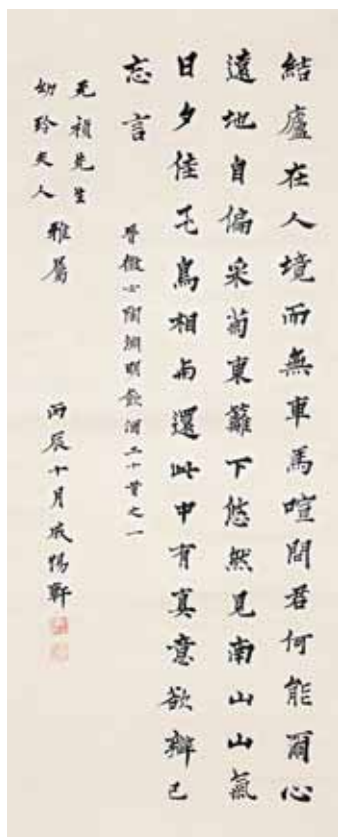 結廬在人境而無車馬喧問君何能爾心
遠地自偏采菊東籬下悠然見南山山氣
日夕佳飛鳥相与還此中有真意欲辯已
忘言
晉徵士陶淵明飲酒二十首之一
元禎先生
幼玲夫人
雅屬
丙辰十月成惕軒